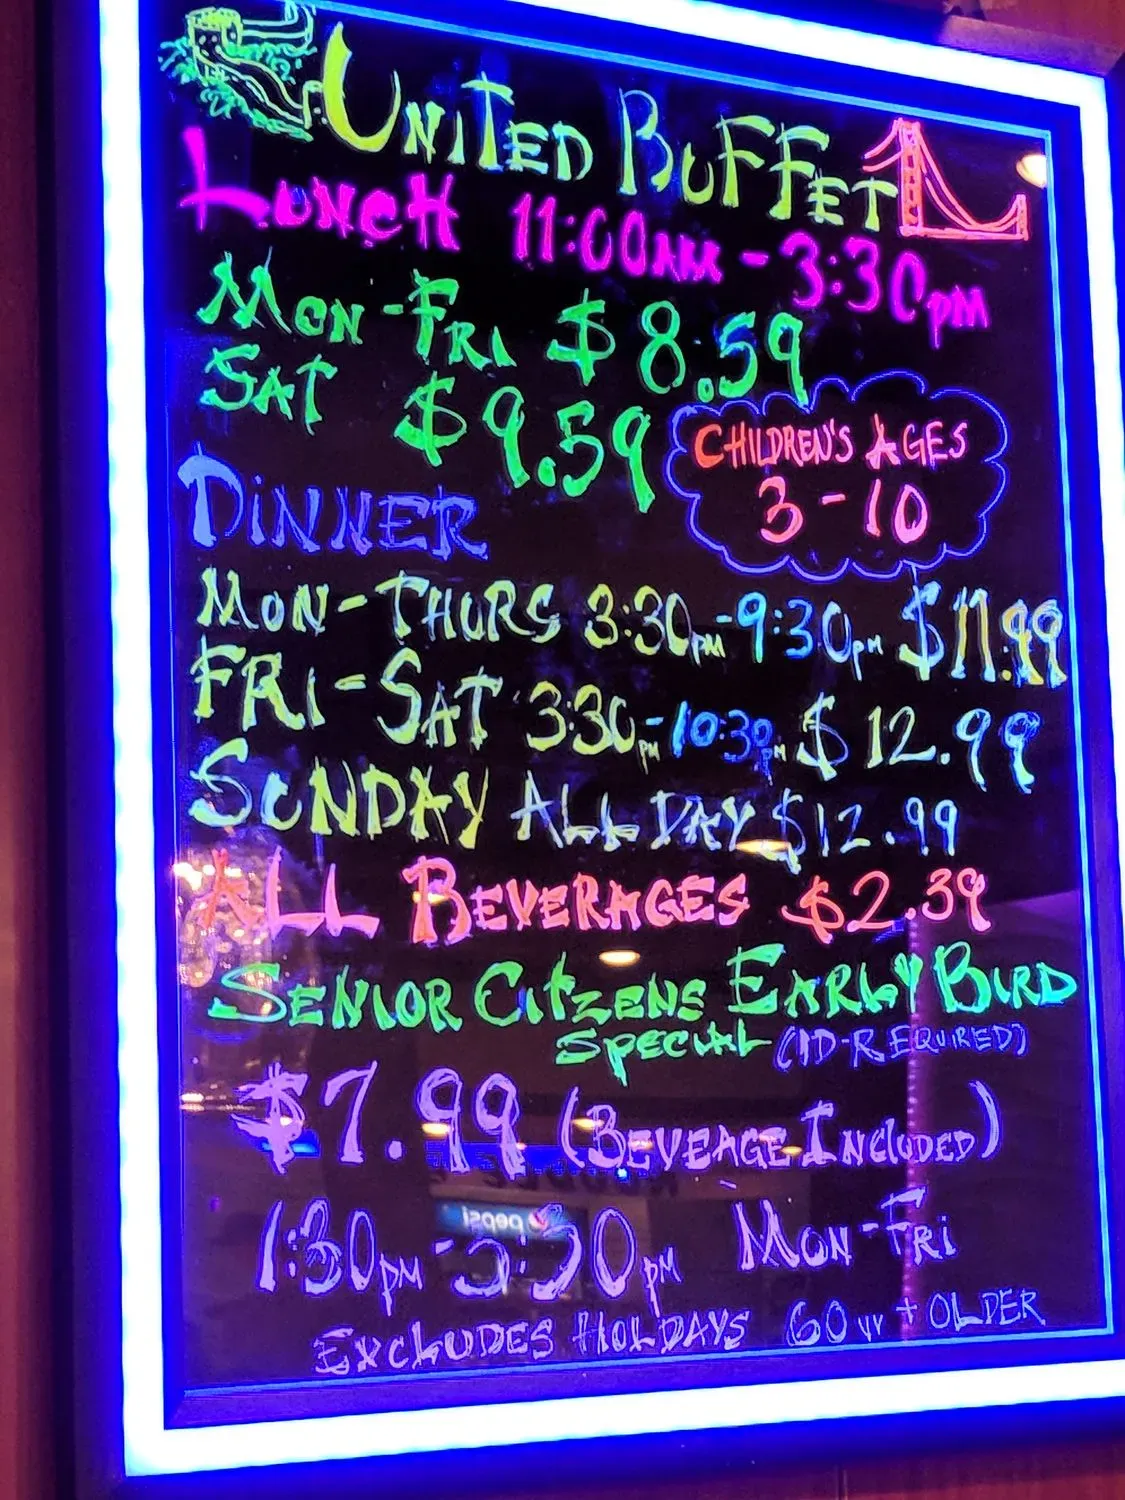 UNITED BUFFET
LUNCH 11:00AM - 3:30pm
MON-FRI $8.59
SAT $9.59
CHILDREN'S AGES
3-10
DINNER
MON-THURS 3:30pm-9:30pm $11.99
FRI-SAT 3:30pm-10:30pm $12.99
SUNDAY ALL DAY $12.99
ALL BEVERAGES $2.39
SENIOR CITZENS EARLY BIRD
SPECIAL (ID-REQUIRED)
$7.99 (BEVEAGE INCLUDED)
pepsi
1:30PM-3:30PM MON-FRI
EXCLUDES HOLDAYS 60 + OLDER